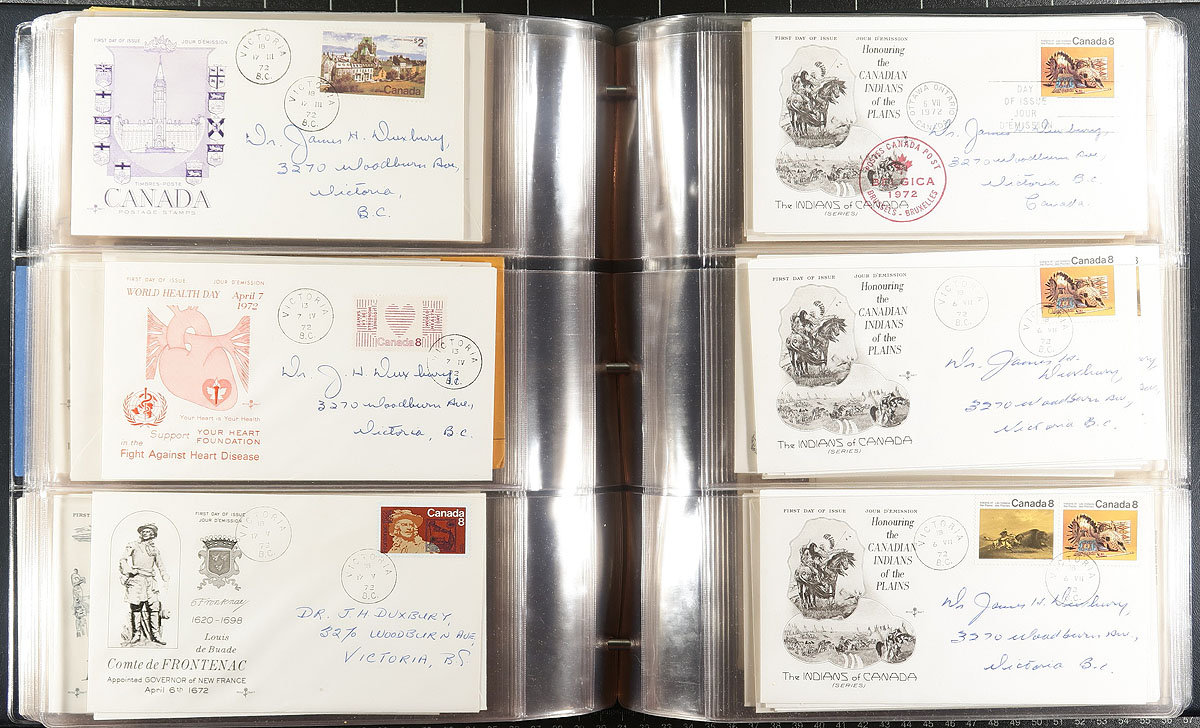 FIRST DAY OF ISSUE JOUR D'EMISSION
TIMBRES-POSTE
CANADA
POSTAGE-STAMPS
VICTORIA
18
17 III
72
B.C.
$2
Canada
VICTORIA
18
17 III
72
B.C.
Dr. James H. Duxbury,
3270 Woodburn Ave,
Victoria,
B.C.
FIRST DAY OF ISSUE JOUR D'EMISSION
WORLD HEALTH DAY April 7
1972
Your Heart is Your Health
Support YOUR HEART
in the FOUNDATION
Fight Against Heart Disease
VICTORIA
13
7 IV
72
B.C.
Canada 8
VICTORIA
13
7 IV
72
B.C.
Dr. J. H. Duxbury,
3270 Woodburn Ave.,
Victoria, B.C.
FIRST DAY OF ISSUE
JOUR D'EMISSION
Frontenac
1620-1698
Louis
de Buade
Comte de FRONTENAC
Appointed GOVERNOR of NEW FRANCE
April 6th 1672
VICTORIA
17 V
72
B.C.
Canada
8
VICTORIA
17 V
72
B.C.
DR. J.H. DUXBURY,
3270 WOODBURN AVE,
VICTORIA, BC
FIRST DAY OF ISSUE JOUR D'EMISSION
Honouring
the
CANADIAN
INDIANS
of the
PLAINS
The INDIANS of CANADA
(SERIES)
OTTAWA ONTARIO
6 VII
1972
CANADA
Canada 8
DAY
OF ISSUE
JOUR
D'ÉMISSION
POSTES CANADA POST
BELGICA
1972
BRUSSELS - BRUXELLES
Dr. James H. Duxbury,
3270 Woodburn Ave,
Victoria B.C.
Canada.
FIRST DAY OF ISSUE JOUR D'EMISSION
Honouring
the
CANADIAN
INDIANS
of the
PLAINS
The INDIANS of CANADA
(SERIES)
VICTORIA
13
6 VII
72
B.C.
Canada 8
VICTORIA
6 VII
72
B.C.
Dr. James H.
Duxbury
3270 Woodburn Ave,
Victoria B.C.
FIRST DAY OF ISSUE JOUR D'EMISSION
Honouring
the
CANADIAN
INDIANS
of the
PLAINS
The INDIANS of CANADA
(SERIES)
VICTORIA
6 VII
72
B.C.
Canada 8
Canada 8
VICTORIA
6 VII
72
B.C.
Dr. James H. Duxbury,
3270 Woodburn Ave,
Victoria B.C.